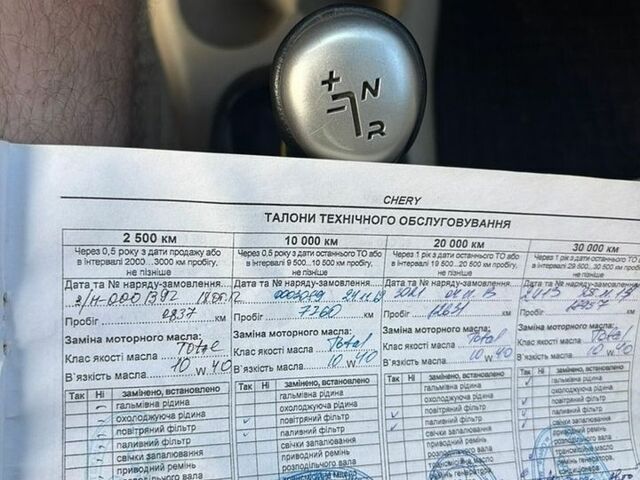 + N
R
CHERY
ТАЛОНИ ТЕХНІЧНОГО ОБСЛУГОВУВАННЯ
2 500 км
Через 0,5 року з дати продажу або
в інтервалі 2000...3000 км пробігу,
не пізніше
Дата та № наряду-замовлення
Пробіг 2837 км
Заміна моторного масла:
Клас якості масла Total
В`язкість масла 10 W 40
Так Ні замінено, встановлено
гальмівна рідина
охолоджуюча рідина
повітряний фільтр
паливний фільтр
свічки запалювання
приводний ремінь
розподільчого вала
10 000 км
Через 0,5 року з дати останнього ТО або
в інтервалі 9 500...10 500 км пробігу,
не пізніше
Дата та № наряду-замовлення
Пробіг 7260 км
Заміна моторного масла:
Клас якості масла Total
В`язкість масла 10 W 40
Так Ні замінено, встановлено
гальмівна рідина
охолоджуюча рідина
повітряний фільтр
паливний фільтр
свічки запалювання
приводний ремінь
розподільчого вала
20 000 км
Через 1 рік з дати останнього ТО або
в інтервалі 19 500...20 500 км пробігу,
не пізніше
Дата та № наряду-замовлення
Пробіг км
Заміна моторного масла:
Клас якості масла Total
В`язкість масла 10 W 40
Так Ні замінено, встановлено
гальмівна рідина
охолоджуюча рідина
повітряний фільтр
паливний фільтр
свічки запалювання
приводний ремінь
30 000 км
Через 1 рік з дати останнього ТО або
в інтервалі 29 500...30 500 км пробігу,
не пізніше
Дата та № наряду-замовлення
Пробіг км
Заміна моторного масла:
Клас якості масла Total
В`язкість масла 10 W 40
Так Ні замінено, встановлено
гальмівна рідина
охолоджуюча рідина
повітряний фільтр
паливний фільтр
свічки запалювання
приводний ремінь